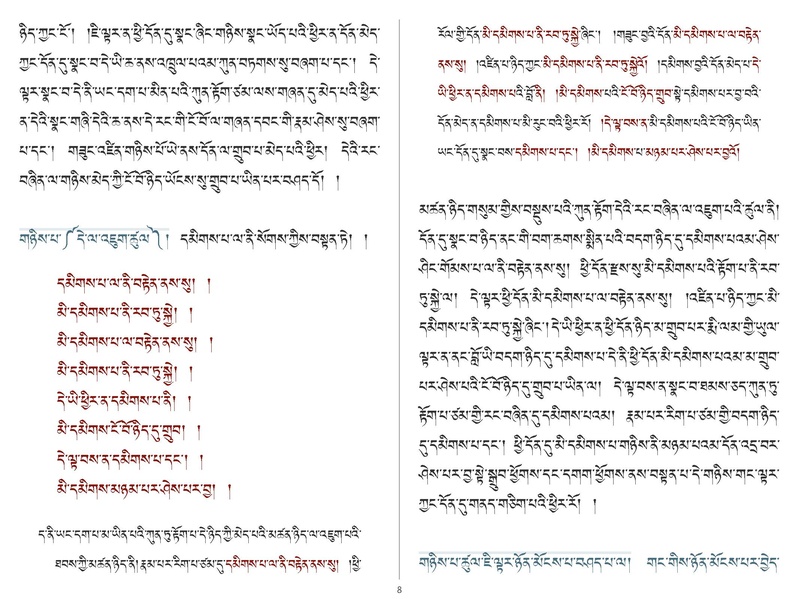 ཉིད་ཀྱང་ངོ་། །ཇི་ལྟར་ན་ཕྱི་དོན་དུ་སྣང་ཞིང་གཉིས་སྣང་ཡོད་པའི་ཕྱིར་ན་དོན་མེད་
ཀྱང་དོན་དུ་སྣང་བ་དེ་ཡི་ཆ་ནས་འཁྲུལ་པའམ་ཀུན་བཏགས་སུ་བཞག་པ་དང་། དེ་
ལྟར་སྣང་བ་དེ་ནི་ཡང་དག་པ་མིན་པའི་ཀུན་རྟོག་ཙམ་ལས་གཞན་དུ་མེད་པའི་ཕྱིར་
ན་དེའི་སྣང་གཞི་དེའི་ཆ་ནས་དེ་རང་གི་ངོ་བོ་ལ་གཞན་དབང་གི་རྣམ་ཤེས་སུ་བཞག་
པ་དང་། གཟུང་འཛིན་གཉིས་པོ་ཡེ་ནས་དོན་ལ་གྲུབ་པ་མེད་པའི་ཕྱིར། དེའི་རང་
བཞིན་ལ་གཉིས་མེད་ཀྱི་ངོ་བོ་ཉིད་ཡོངས་སུ་གྲུབ་པ་ཡིན་པར་བཤད་དོ། །
གཉིས་པ་༼དེ་ལ་འཇུག་ཚུལ་༽། དམིགས་པ་ལ་ནི་སོགས་ཀྱིས་བསྟན་ཏེ། །
དམིགས་པ་ལ་ནི་བརྟེན་ནས་སུ། །
མི་དམིགས་པ་ནི་རབ་ཏུ་སྐྱེ། །
མི་དམིགས་པ་ལ་བརྟེན་ནས་སུ། །
མི་དམིགས་པ་ནི་རབ་ཏུ་སྐྱེ། །
དེ་ཡི་ཕྱིར་ན་དམིགས་པ་ནི། །
མི་དམིགས་ངོ་བོ་ཉིད་དུ་གྲུབ། །
དེ་ལྟ་བས་ན་དམིགས་པ་དང་། །
མི་དམིགས་མཉམ་པར་ཤེས་པར་བྱ། །
ད་ནི་ཡང་དག་པ་མ་ཡིན་པའི་ཀུན་ཏུ་རྟོག་པ་དེ་ཉིད་ཀྱི་མེད་པའི་མཚན་ཉིད་ལ་འཇུག་པའི་
ཐབས་ཀྱི་མཚན་ཉིད་ནི། རྣམ་པར་རིག་པ་ཙམ་དུ་དམིགས་པ་ལ་ནི་བརྟེན་ནས་སུ། །ཕྱི་
རོལ་གྱི་དོན་མི་དམིགས་པ་ནི་རབ་ཏུ་སྐྱེ་ཞིང་། །གཟུང་བྱའི་དོན་མི་དམིགས་པ་ལ་བརྟེན་
ནས་སུ། །འཛིན་པ་ཉིད་ཀྱང་མི་དམིགས་པ་ནི་རབ་ཏུ་སྐྱེའོ། །དམིགས་བྱའི་དོན་མེད་པ་དེ་
ཡི་ཕྱིར་ན་དམིགས་པའི་བློ་ནི། །མི་དམིགས་པའི་ངོ་བོ་ཉིད་གྲུབ་སྟེ་དམིགས་པར་བྱ་བའི་
དོན་མེད་ན་དམིགས་པ་མི་རུང་བའི་ཕྱིར་རོ། །དེ་ལྟ་བས་ན་མི་དམིགས་པའི་ངོ་བོ་ཉིད་ཡིན་
ཡང་དོན་དུ་སྣང་བས་དམིགས་པ་དང་། །མི་དམིགས་པ་མཉམ་པར་ཤེས་པར་བྱའོ། །
མཚན་ཉིད་གསུམ་གྱིས་བསྡུས་པའི་ཀུན་རྟོག་དེའི་རང་བཞིན་ལ་འཇུག་པའི་ཚུལ་ནི།
དོན་དུ་སྣང་བ་ཉིད་ནང་གི་བག་ཆགས་སྨིན་པའི་བདག་ཉིད་དུ་དམིགས་པའམ་ཤེས་
ཤིང་གོམས་པ་ལ་ནི་བརྟེན་ནས་སུ། ཕྱི་དོན་རྫས་སུ་མི་དམིགས་པའི་རྟོག་པ་ནི་རབ་
ཏུ་སྐྱེ་ལ། དེ་ལྟར་ཕྱི་དོན་མི་དམིགས་པ་ལ་བརྟེན་ནས་སུ། །འཛིན་པ་ཉིད་ཀྱང་མི་
དམིགས་པ་ནི་རབ་ཏུ་སྐྱེ་ཞིང་། དེ་ཡི་ཕྱིར་ན་ཕྱི་དོན་ཉིད་མ་གྲུབ་པར་རྨི་ལམ་གྱི་ཡུལ་
ལྟར་ན་ནང་བློ་ཡི་བདག་ཉིད་དུ་དམིགས་པ་དེ་ནི་ཕྱི་དོན་མི་དམིགས་པའམ་མ་གྲུབ་
པར་ཤེས་པའི་ངོ་བོ་ཉིད་དུ་གྲུབ་པ་ཡིན་ལ། དེ་ལྟ་བས་ན་སྣང་བ་ཐམས་ཅད་ཀུན་ཏུ་
རྟོག་པ་ཙམ་གྱི་རང་བཞིན་དུ་དམིགས་པའམ། རྣམ་པར་རིག་པ་ཙམ་གྱི་བདག་ཉིད་
དུ་དམིགས་པ་དང་། ཕྱི་དོན་དུ་མི་དམིགས་པ་གཉིས་ནི་མཉམ་པའམ་དོན་འདྲ་བར་
ཤེས་པར་བྱ་སྟེ་སྒྲུབ་ཕྱོགས་དང་དགག་ཕྱོགས་ནས་བསྟན་པ་དེ་གཉིས་གང་ལྟར་
ཀྱང་དོན་དུ་གནད་གཅིག་པའི་ཕྱིར་རོ། །
གཉིས་པ་ཚུལ་ཇི་ལྟར་ཉོན་མོངས་པ་བཤད་པ་ལ། གང་གིས་ཉོན་མོངས་པར་བྱེད་
8